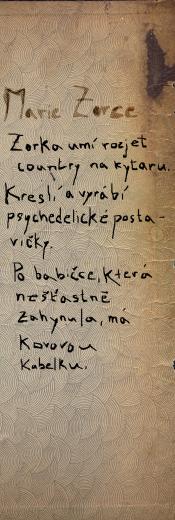 Marie Zorce
Zorka umí rozjet
country na kytaru.
Kreslí a vyrábí
psychedelické posta-
vičky.
Po babičce, která
nešťastně
zahynula, má
kovovou
kabelku.